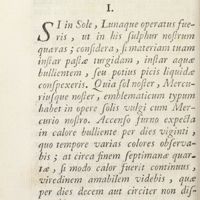 I.
SI in Sole, Lunaque operatus fue-
ris, ut in his sulphur nostrum
quæras; considera, si materiam tuam
instar pastæ turgidam, instar aquæ
bullientem, seu potius picis liquidæ
conspexeris. Quia sol noster, Mercu-
riusque noster, emblematicum typum
habet in opere solis vulgi cum Mer-
curio nostro. Accenso furno expecta
in calore bulliente per dies viginti,
quo tempore varias colores observa-
bis; at circa finem septimanæ quar-
tæ, si modo calor fuerit continuus,
viredinem amabilem videbis, quæ
per dies decem aut circiter non dis-